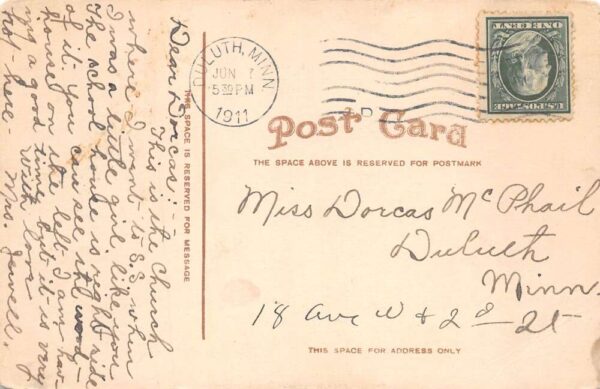 Dear Dorcas:-
This is the church
where I went to S.S. when
I was a little girl, like you
The school house is right side
of it. You can see the wood-
house on the left. I am hav-
ing a good time but it is very
hot - here - With love
Mrs. Jewell.
THIS SPACE IS RESERVED FOR MESSAGE
DULUTH, MINN.
JUN 1
5:30 PM
1911
U.S. POSTAGE
ONE CENT
Post Card
THE SPACE ABOVE IS RESERVED FOR POSTMARK
Miss Dorcas McPhail
Duluth
Minn.
18 Ave W & 2d St
THIS SPACE FOR ADDRESS ONLY